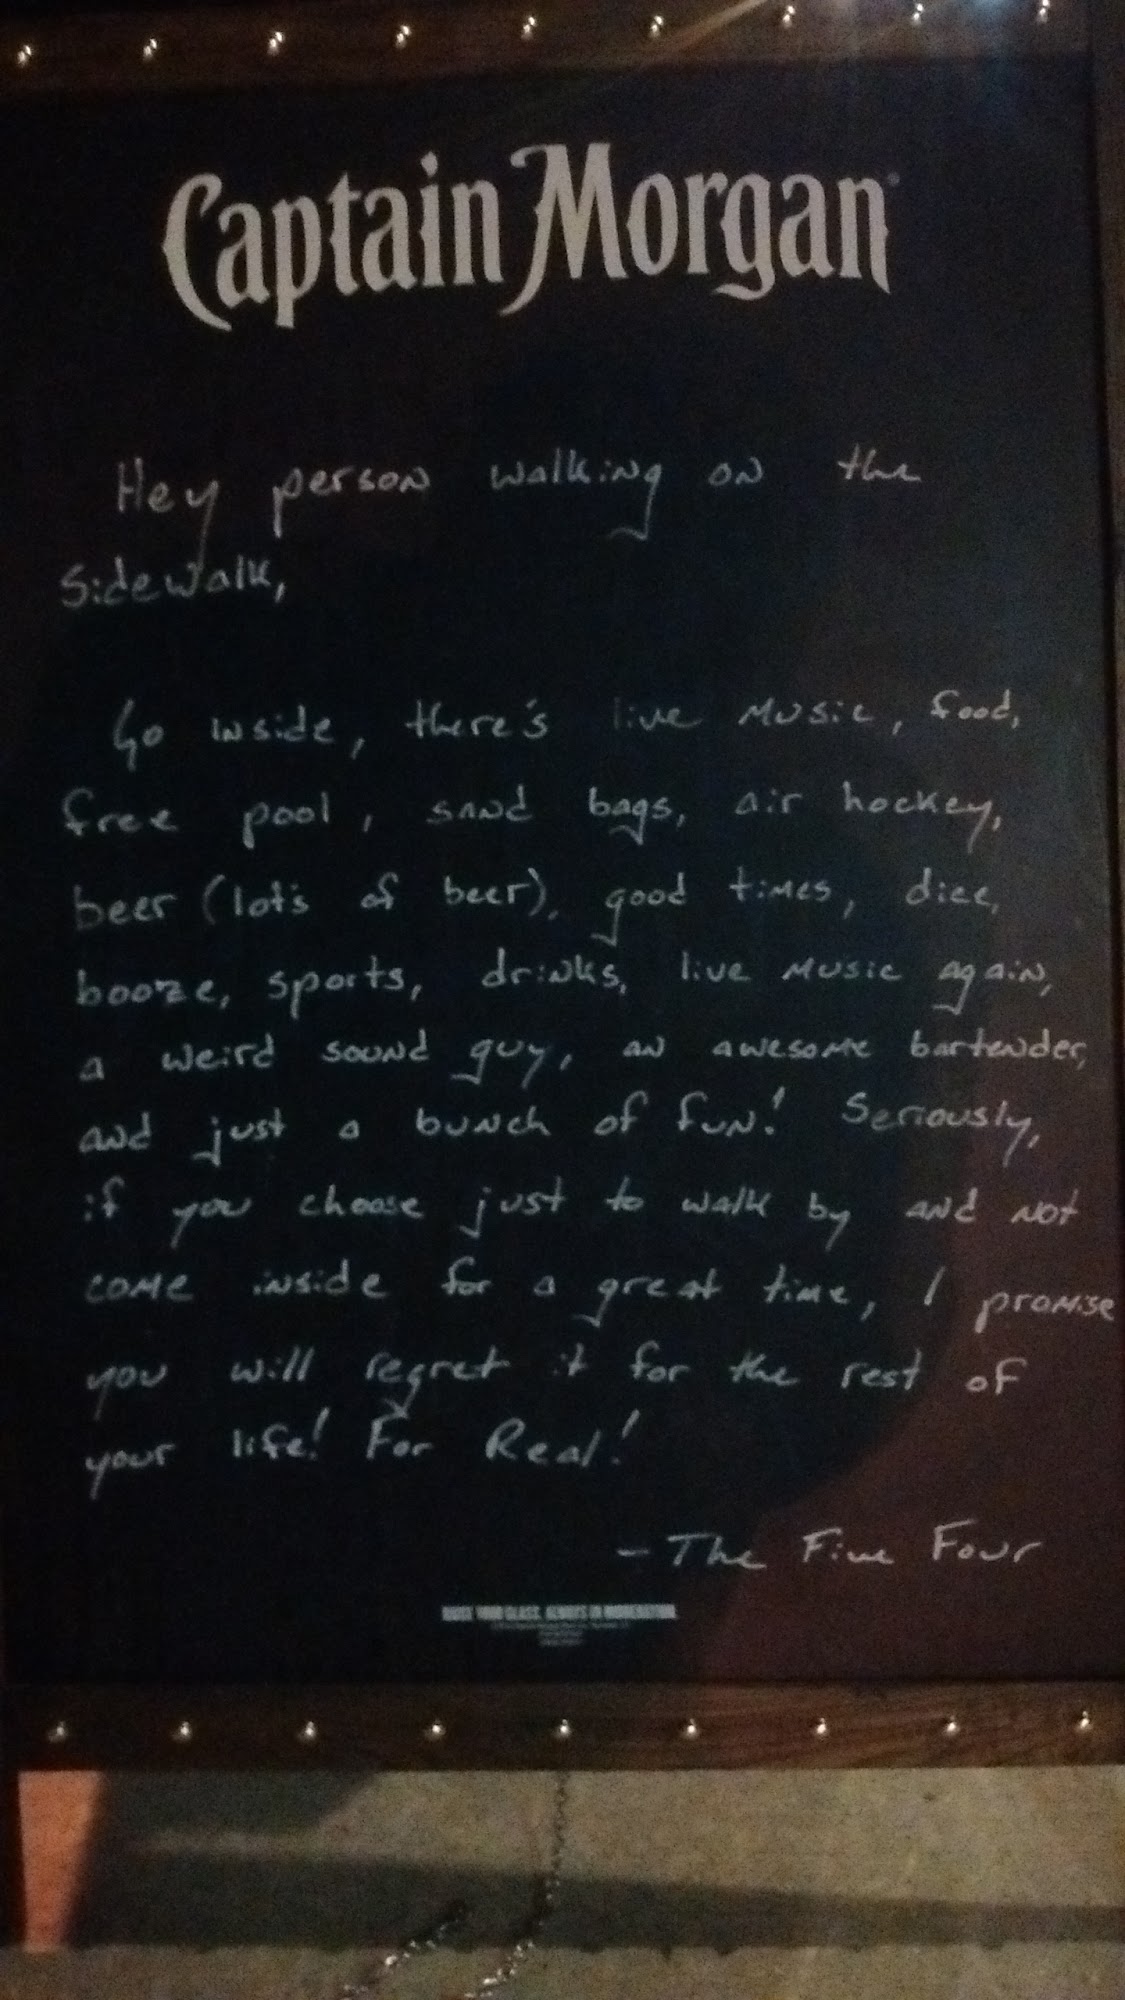 Captain Morgan
Hey person walking on the
Sidewalk,
Go inside, there's live music, food,
free pool, sand bags, air hockey,
beer (lot's of beer), good times, dice,
booze, sports, drinks, live music again,
a weird sound guy, an awesome bartender,
and just a bunch of fun! Seriously,
if you choose just to walk by and not
come inside for a great time, I promise
you will regret it for the rest of
your life! For Real!
- The Five Four
RAISE YOUR GLASS. ALWAYS IN MODERATION.